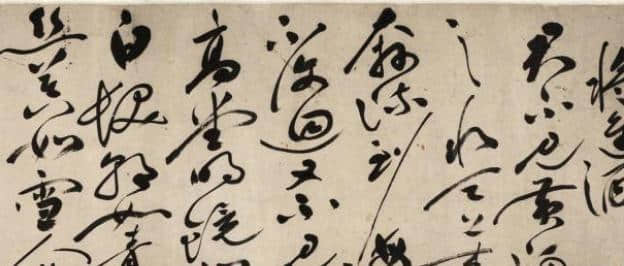 將進酒
君不見黃河
之水天上來
奔流到海
不復回又不見
高堂明鏡
白髮朝如青
絲暮如雪